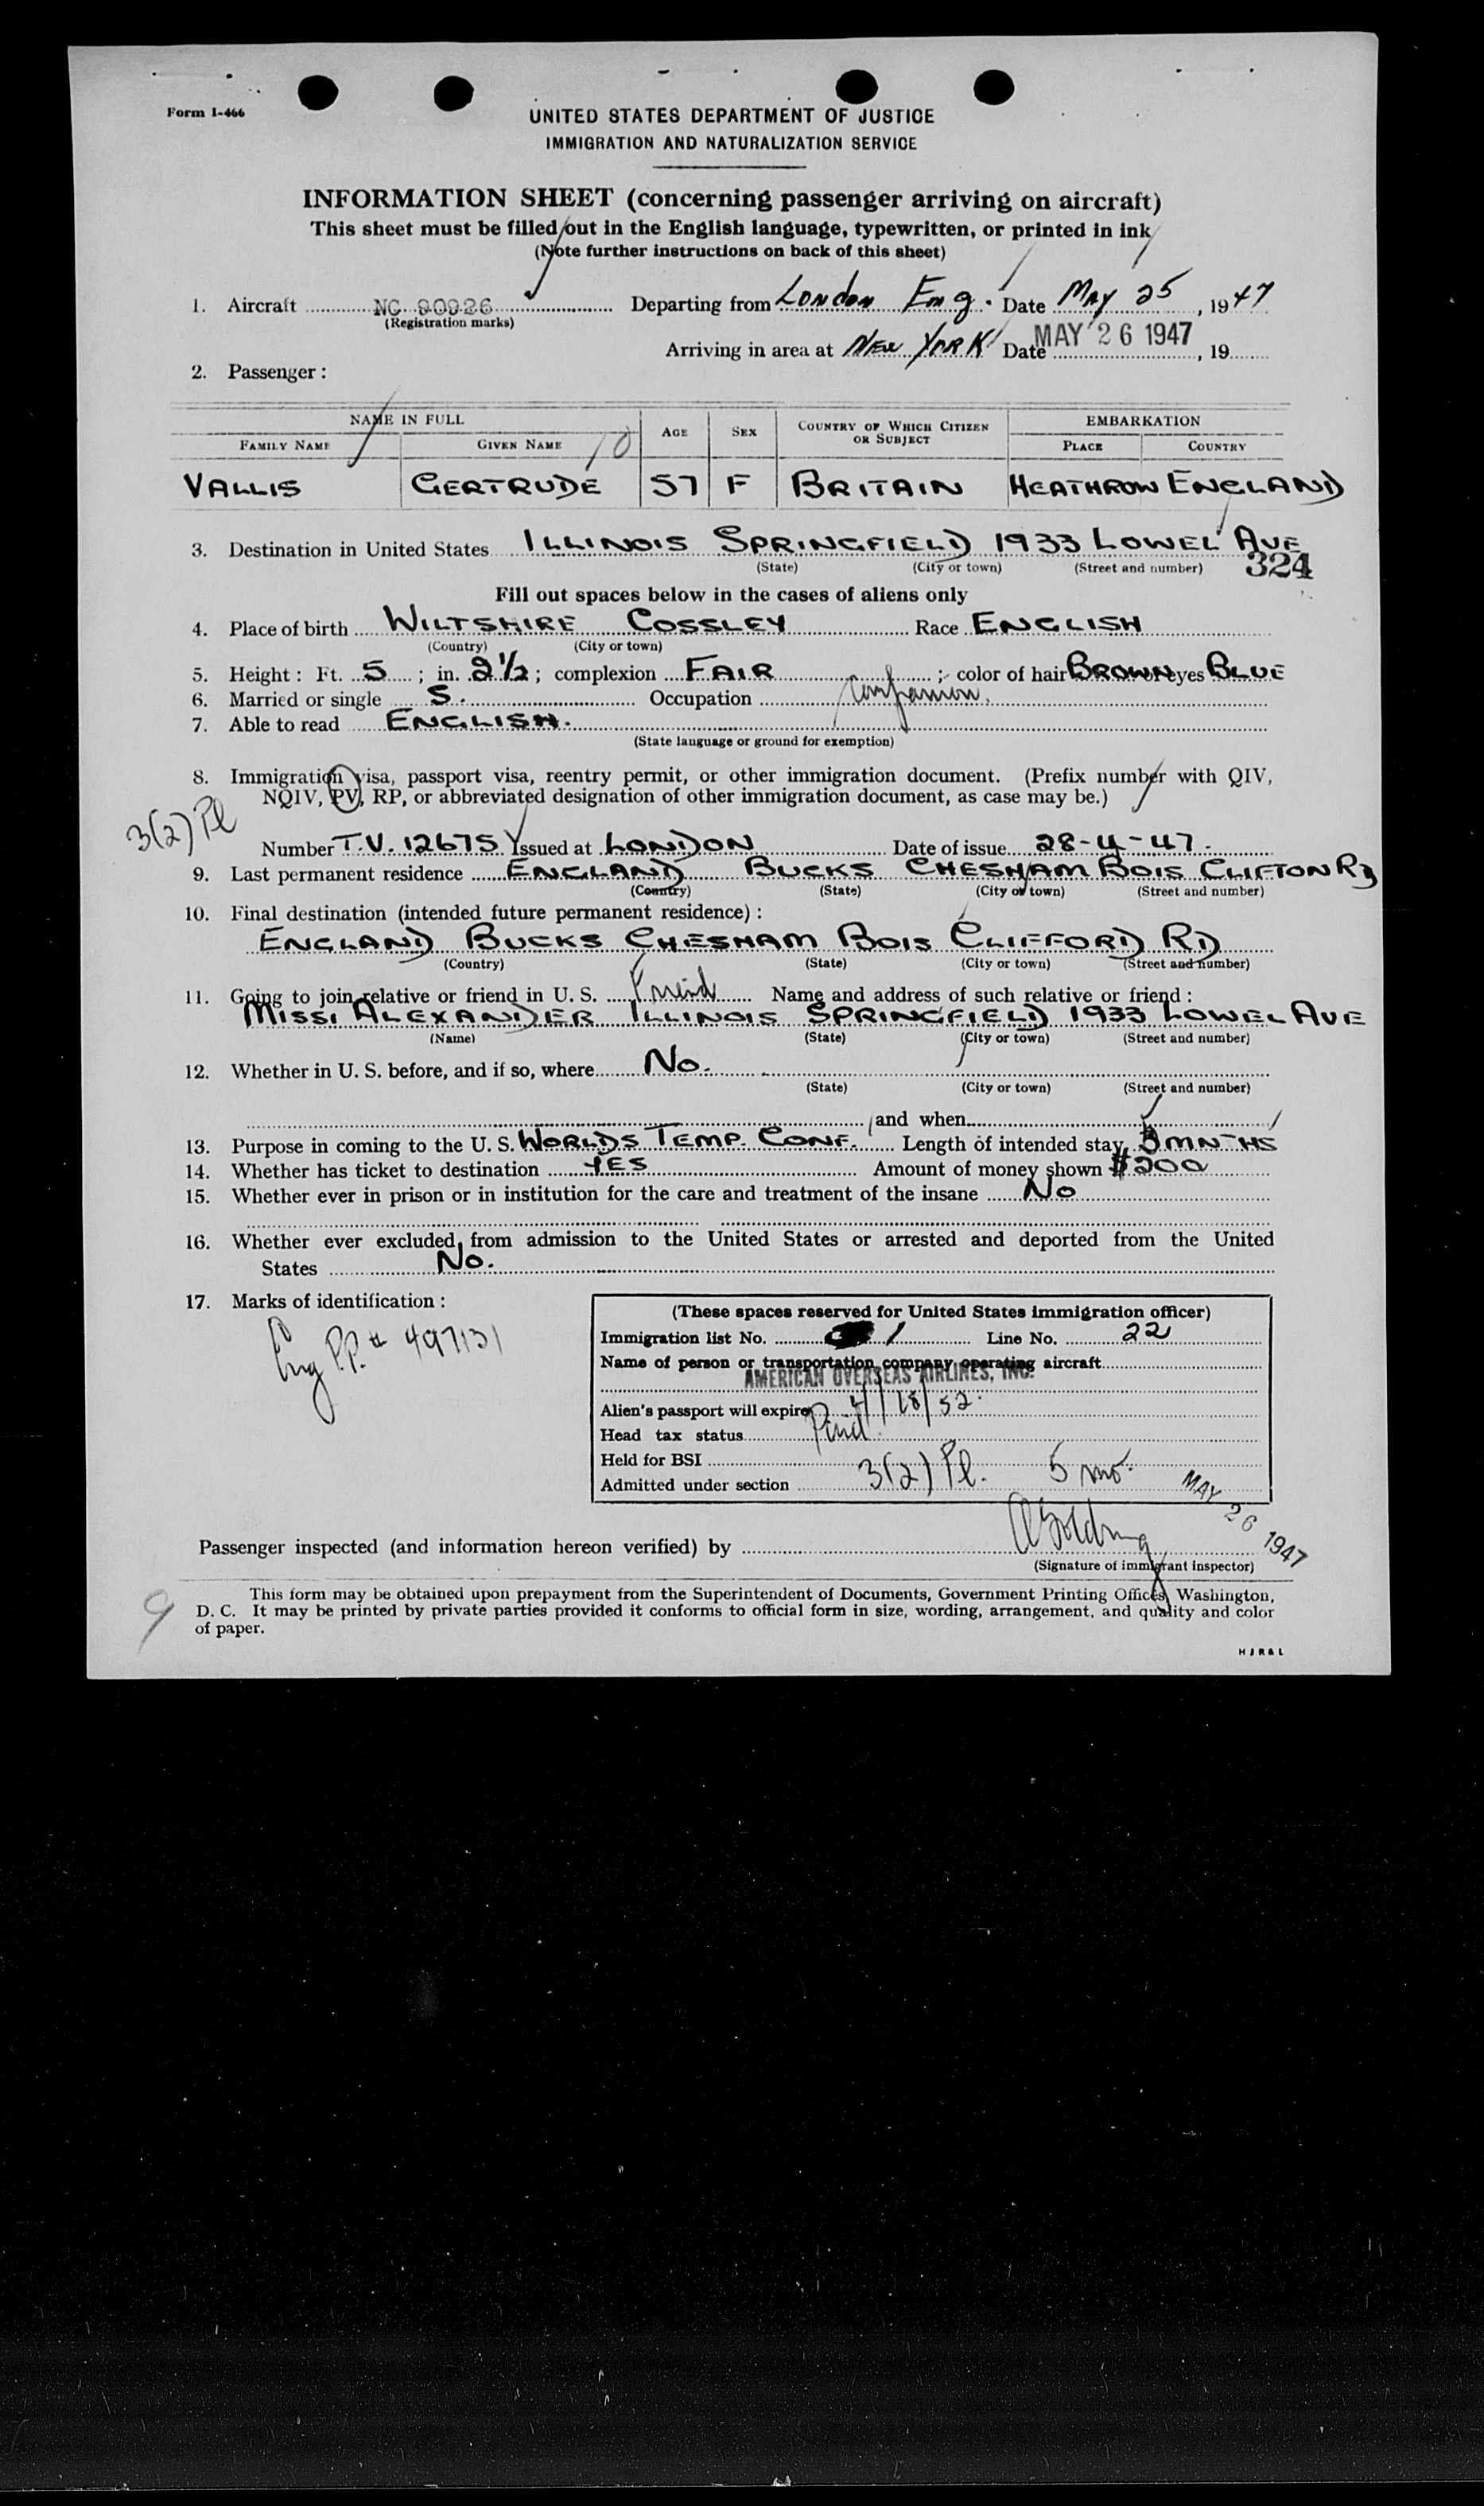 Form I-466
UNITED STATES DEPARTMENT OF JUSTICE
IMMIGRATION AND NATURALIZATION SERVICE
INFORMATION SHEET (concerning passenger arriving on aircraft)
This sheet must be filled out in the English language, typewritten, or printed in ink
(Note further instructions on back of this sheet)
1. Aircraft NC 90926 Departing from London Eng. Date May 25, 1947
(Registration marks)
Arriving in area at New York Date MAY 26 1947, 19
2. Passenger:
NAME IN FULL AGE SEX COUNTRY OF WHICH CITIZEN OR SUBJECT EMBARKATION
FAMILY NAME GIVEN NAME PLACE COUNTRY
VALLIS GERTRUDE 57 F BRITAIN HEATHROW ENGLAND
3. Destination in United States ILLINOIS SPRINGFIELD 1933 LOWEL AVE
(State) (City or town) (Street and number) 324
Fill out spaces below in the cases of aliens only
4. Place of birth WILTSHIRE COSSLEY Race ENGLISH
(Country) (City or town)
5. Height: Ft. 5; in. 2½; complexion FAIR; color of hair BROWN eyes BLUE
6. Married or single S. Occupation Companion.
7. Able to read ENGLISH.
(State language or ground for exemption)
8. Immigration visa, passport visa, reentry permit, or other immigration document. (Prefix number with QIV,
NQIV, PV, RP, or abbreviated designation of other immigration document, as case may be.)
3(2) Pl
Number T.V. 12675 Issued at LONDON Date of issue 28-4-47.
9. Last permanent residence ENGLAND BUCKS CHESHAM BOIS CLIFTON RD
(Country) (State) (City or town) (Street and number)
10. Final destination (intended future permanent residence):
ENGLAND BUCKS CHESHAM BOIS CLIFFORD RD
(Country) (State) (City or town) (Street and number)
11. Going to join relative or friend in U. S. Freind Name and address of such relative or friend:
MISS. ALEXANDER ILLINOIS SPRINGFIELD 1933 LOWEL AVE
(Name) (State) (City or town) (Street and number)
12. Whether in U. S. before, and if so, where No.
(State) (City or town) (Street and number)
and when
13. Purpose in coming to the U. S. WORLDS TEMP. CONF. Length of intended stay MNTHS
14. Whether has ticket to destination YES Amount of money shown $200
15. Whether ever in prison or in institution for the care and treatment of the insane No
16. Whether ever excluded from admission to the United States or arrested and deported from the United
States No.
17. Marks of identification:
Eng P.P. # 497131
(These spaces reserved for United States immigration officer)
Immigration list No. 1 Line No. 22
Name of person or transportation company operating aircraft
AMERICAN OVERSEAS AIRLINES, INC.
Alien's passport will expire 4/18/52.
Head tax status Paid
Held for BSI
Admitted under section 3(2) Pl. 5 mo.
MAY 26 1947
Passenger inspected (and information hereon verified) by
(Signature of immigrant inspector)
This form may be obtained upon prepayment from the Superintendent of Documents, Government Printing Office, Washington,
D. C. It may be printed by private parties provided it conforms to official form in size, wording, arrangement, and quality and color
of paper.
9
H J R & L